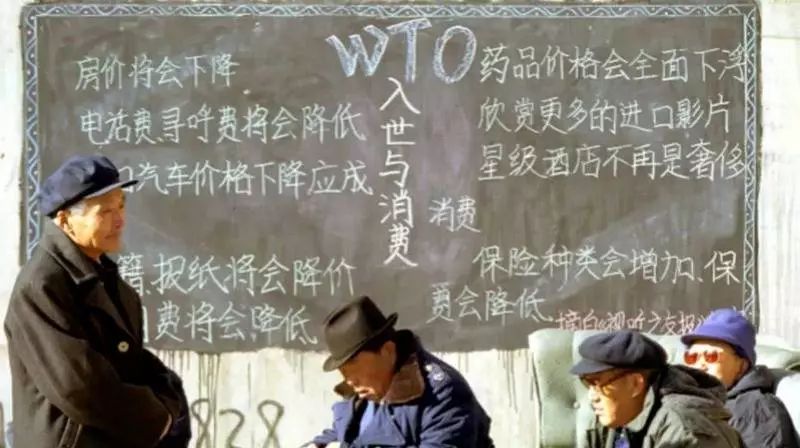 WTO
入世与消费
房价将会下降
电话费、寻呼费将会降低
汽车价格下降应成
籍、报纸将会降价
费将会降低
药品价格会全面下浮
欣赏更多的进口影片
星级酒店不再是奢侈
消费
保险种类会增加、保
费会降低
摘自《视听之友报
828